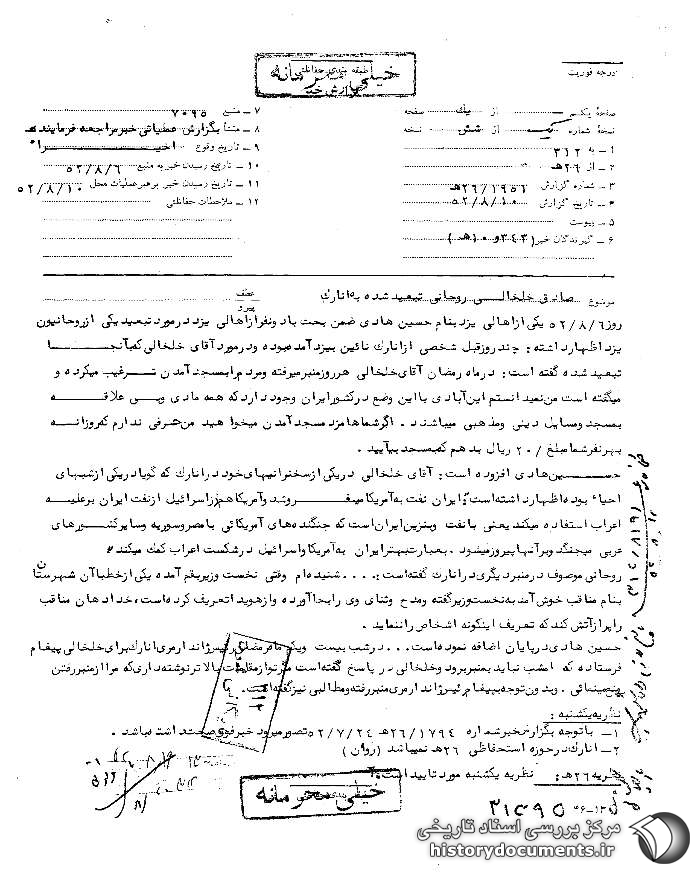 درجه فوریت
طبقه بندی حفاظتی
خیلی محرمانه
صفحهٔ یکم از یک صفحه
نسخهٔ شماره یک از شش نسخه
۱ـ به ۳۱۲
۲ـ از ۲۶هـ
۳ـ شماره گزارش ۲۶/۱۹۵۱هـ
۴ـ تاریخ گزارش ۵۲/۸/۱۰
۵ـ پیوست
۶ـ گیرندگان خبر
۷ـ منبع ۷۰۹۵
۸ـ منشأ بگزارش عملیاتی خبر مراجعه فرمایند
۹ـ تاریخ وقوع اخیراً
۱۰ـ تاریخ رسیدن خبر به منبع ۵۲/۸/۶
۱۱ـ تاریخ رسیدن خبر برهبر عملیات محل ۵۲/۸/۱۰
۱۲ـ ملاحظات حفاظتی
موضوع صادق خلخالی روحانی تبعید شده به انارک
عطف
پیرو
روز ۵۲/۸/۶ یکی از اهالی یزد بنام حسین هادی ضمن بحث با دونفر از اهالی یزد در مورد تبعید یکی از روحانیون
یزد اظهار داشته : چند روز قبل شخصی از انارک نائین بیزد آمده بوده و در مورد آقای خلخالی که بآنجا
تبعید شده گفته است : در ماه رمضان آقای خلخالی هر روز منبر میرفته و مردم را بمسجد آمدن ترغیب میکرده و
میگفته است من نمیدانستم این آبادی با این وضع در کشور ایران وجود دارد که همه مادی و بی علاقه
بمسجد و مسایل دینی و مذهبی میباشند . اگر شماها مزد مسجد آمدن میخواهید من حرفی ندارم که روزانه
بهر نفر شما مبلغ ۲۰/ ریال بدهم که بمسجد بیایید .
حسین هادی افزوده است : آقای خلخالی در یکی از سخنرانیهای خود در انارک که گویا در یکی از شبهای
احیاء بوده اظهار داشته است ایران نفت به آمریکا میفروشد و آمریکا هم از اسرائیل از نفت ایران بر علیه
اعراب استفاده میکند یعنی با نفت و بنزین ایران است که جنگنده های آمریکائی با مصر و سوریه و سایر کشورهای
عربی میجنگد و بر آنها پیروز میشود . بعبارت بهتر ایران به آمریکا و اسرائیل در شکست اعراب کمک میکند
روحانی موصوف در منبر دیگری در انارک گفته است : .... شنیده ام وقتی نخست وزیر بقم آمده یکی از خطبا آن شهرستان
بنام مناقب خوش آمد به نخست وزیر گفته و مدح و ثنای وی را بجا آورده و از هویدا تعریف کرده است ، خدا دهان مناقب
را پر از آتش کند که تعریف اینگونه اشخاص را ننماید .
حسین هادی در پایان اضافه نموده است ... در شب بیست و یکم ماه رمضان رئیس ژاندارمری انارک برای خلخالی پیغام
فرستاده که امشب نباید بمنبر برود و خلخالی در پاسخ گفته است مگر تو از مقامات بالاتر نوشته داری که مرا از منبر رفتن
منع مینمائی . و بدون توجه به پیغام رئیس ژاندارمری منبر رفته و مطالبی نیز گفته است .
نظریه یکشنبه :
۱ـ با توجه بگزارش خبر شماره ۲۶/۱۷۹۴هـ ۵۲/۷/۲۴ تصور میرود خبر فوق صحت داشته باشد .
۲ـ انارک در حوزه استحفاظی ۲۶هـ نمیباشد (روان)
نظریه ۲۶هـ : نظریه یکشنبه مورد تایید است
خیلی محرمانه
مرکز بررسی اسناد تاریخی
historydocuments.ir